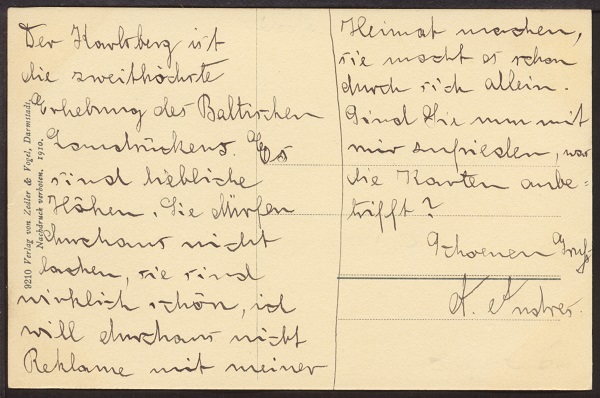 Der Karlsberg ist
die zweithöchste
Erhebung des Baltischen
Landrückens. Es
sind liebliche
Höhen. Sie dürfen
durchaus nicht
lachen, sie sind
wirklich schön, ich
will durchaus nicht
Reklame mit meiner
Heimat machen,
sie macht es schon
durch sich allein.
Sind Sie nun mit
mir zufrieden, was
die Karten anbe-
trifft?
Schoenen Gruß
K. Andres.
9210 Verlag von Zedler & Vogel, Darmstadt.
Nachdruck verboten. 1910.